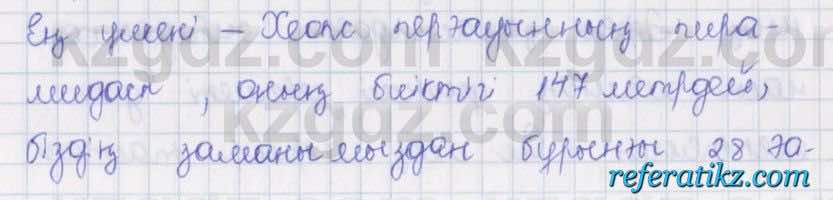 Ең үлкені – Хеопс перғауынның пира-
мидасы, оның биіктігі 147 метрдей,
біздің заманымыздан бұрынғы 28 ға-
kzgdz.com
referatikz.com